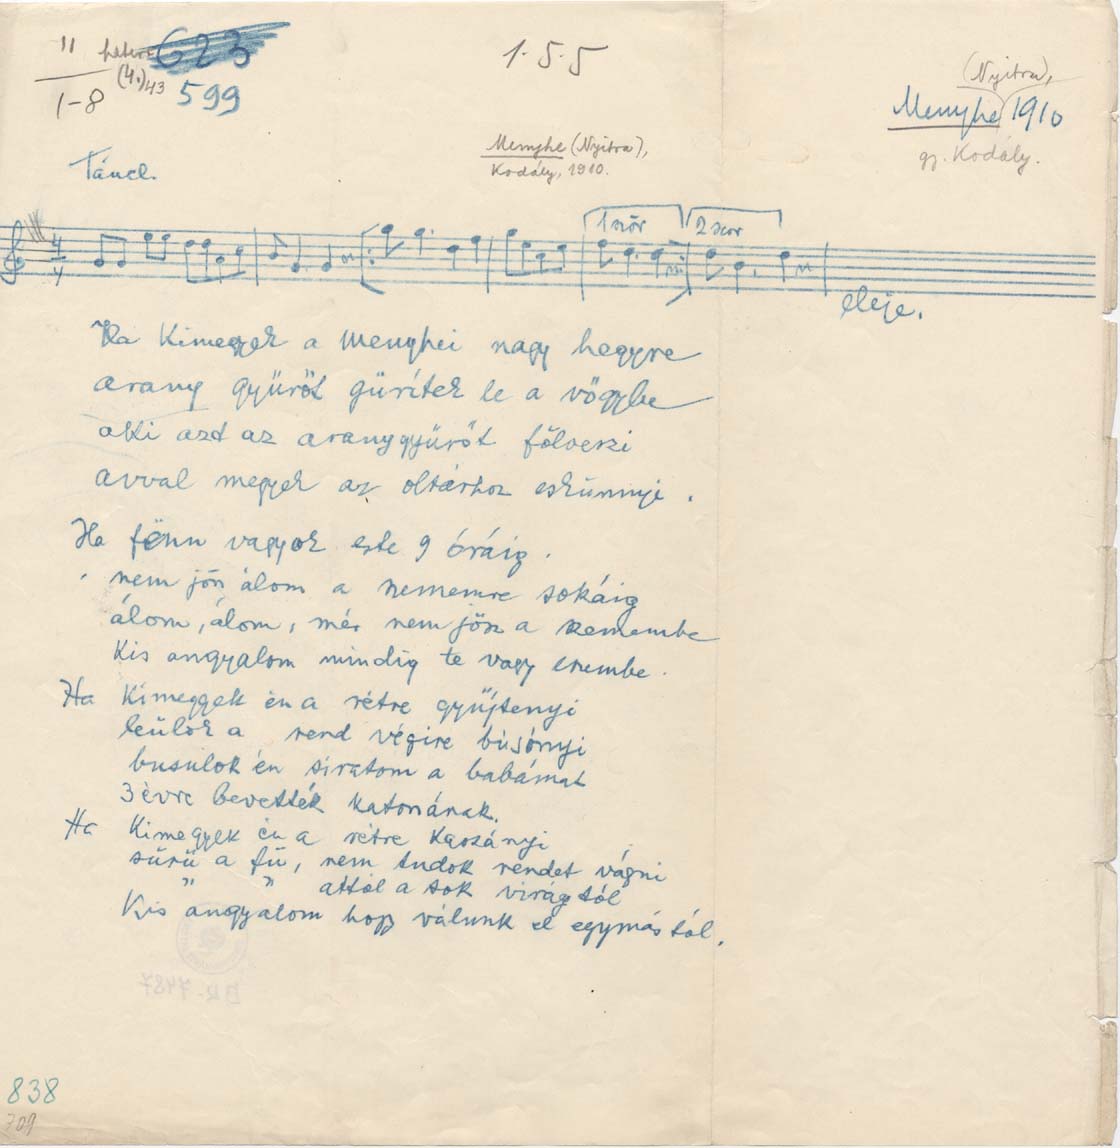 11
1-8
(4.) 43
623
599
1. 5. 5
(Nyitra),
Menyhe 1910
gy. Kodály.
Menyhe (Nyitra),
Kodály, 1910.
Táncd.
4
4
1 ször
2 szor
eleje.
Ha kimegyek a menyhei nagy hegyre
arany gyűrőt gűrítek le a vőgybe
aki azt az aranygyűrőt fölveszi
avval megyek az oltárhoz eskünnyi.
Ha fönn vagyok este 9 óráig.
nem jön álom a szememre sokáig
álom, álom, mér nem jösz a szemembe
kis angyalom mindig te vagy eszembe.
Ha kimegyek én a rétre gyűjtenyi
leülök a rend végire búsónyi
busulok én siratom a babámat
3 évre bevették katonának.
Ha kimegyek én a rétre kaszányi
sűrü a fű, nem tudok rendet vágni
" " attól a sok virágtól
kis angyalom hogy válunk el egymástól.
BR-7487
838
709